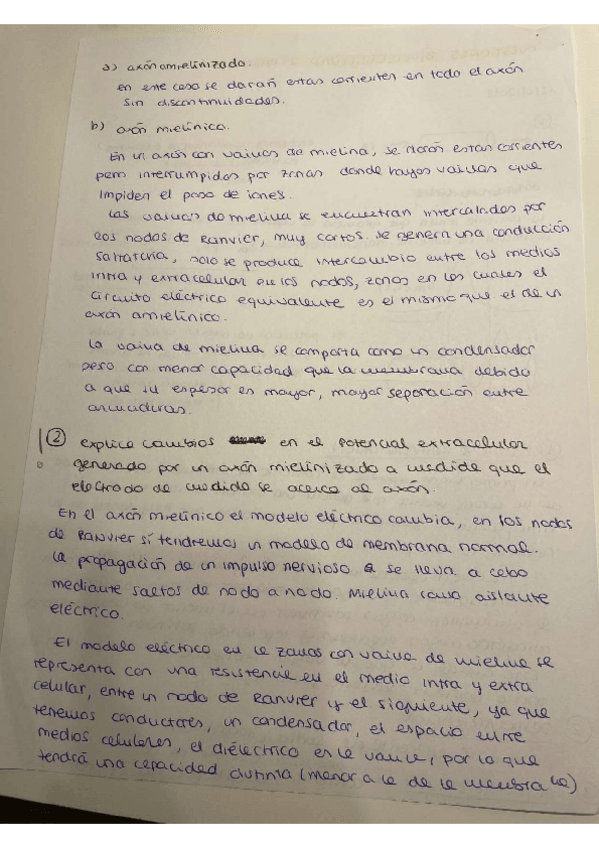 a) axón amielinizado.
en este caso se darán estas corrientes en todo el axón
sin discontinuidades.
b) axón mielínico.
En un axón con vainas de mielina, se darán estas corrientes
pero interrumpidos por zonas donde hayas vainas que
impiden el paso de iones.
Las vainas de mielina se encuentran intercalados por
los nodos de Ranvier, muy cortos. Se genera una conducción
saltatoria, solo se produce intercambio entre los medios
intra y extracelular en los nodos, zonas en las cuales el
circuito eléctrico equivalente es el mismo que el de un
axón amielínico.
La vaina de mielina se comporta como un condensador
pero con menor capacidad que la membrana debido
a que su espesor es mayor, mayor separación entre
armaduras.
② explica cambios en el potencial extracelular
generado por un axón mielinizado a medida que el
electrodo de medida se acerca al axón.
En el axón mielínico el modelo eléctrico cambia, en los nodos
de Ranvier sí tendremos un modelo de membrana normal.
La propagación de un impulso nervioso se lleva a cabo
mediante saltos de nodo a nodo. Mielina como aislante
eléctrico.
El modelo eléctrico en la zonas con vaina de mielina se
representa con una resistencia en el medio intra y extra
celular, entre un nodo de Ranvier y el siguiente, ya que
tenemos conductores, un condensador, el espacio entre
medios celulares, el dieléctrico es la vaina, por lo que
tendrá una capacidad distinta (menor a la de la membrana)